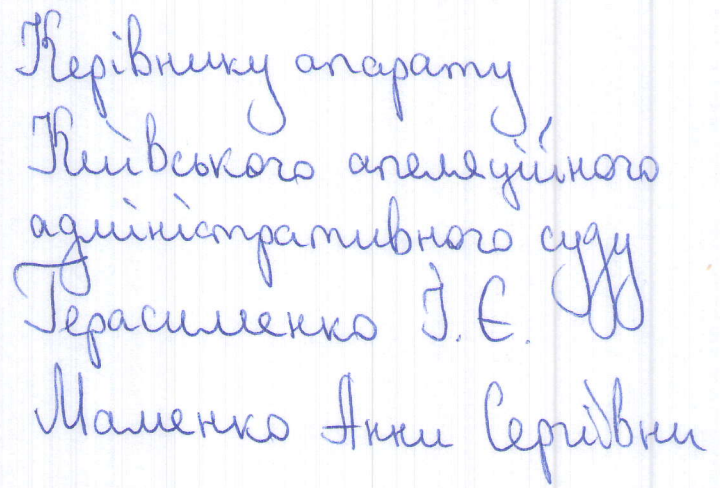 Керівнику апарату
Київського апеляційного
адміністративного суду
Герасименко І. Є.
Маменко Анни Сергіївни